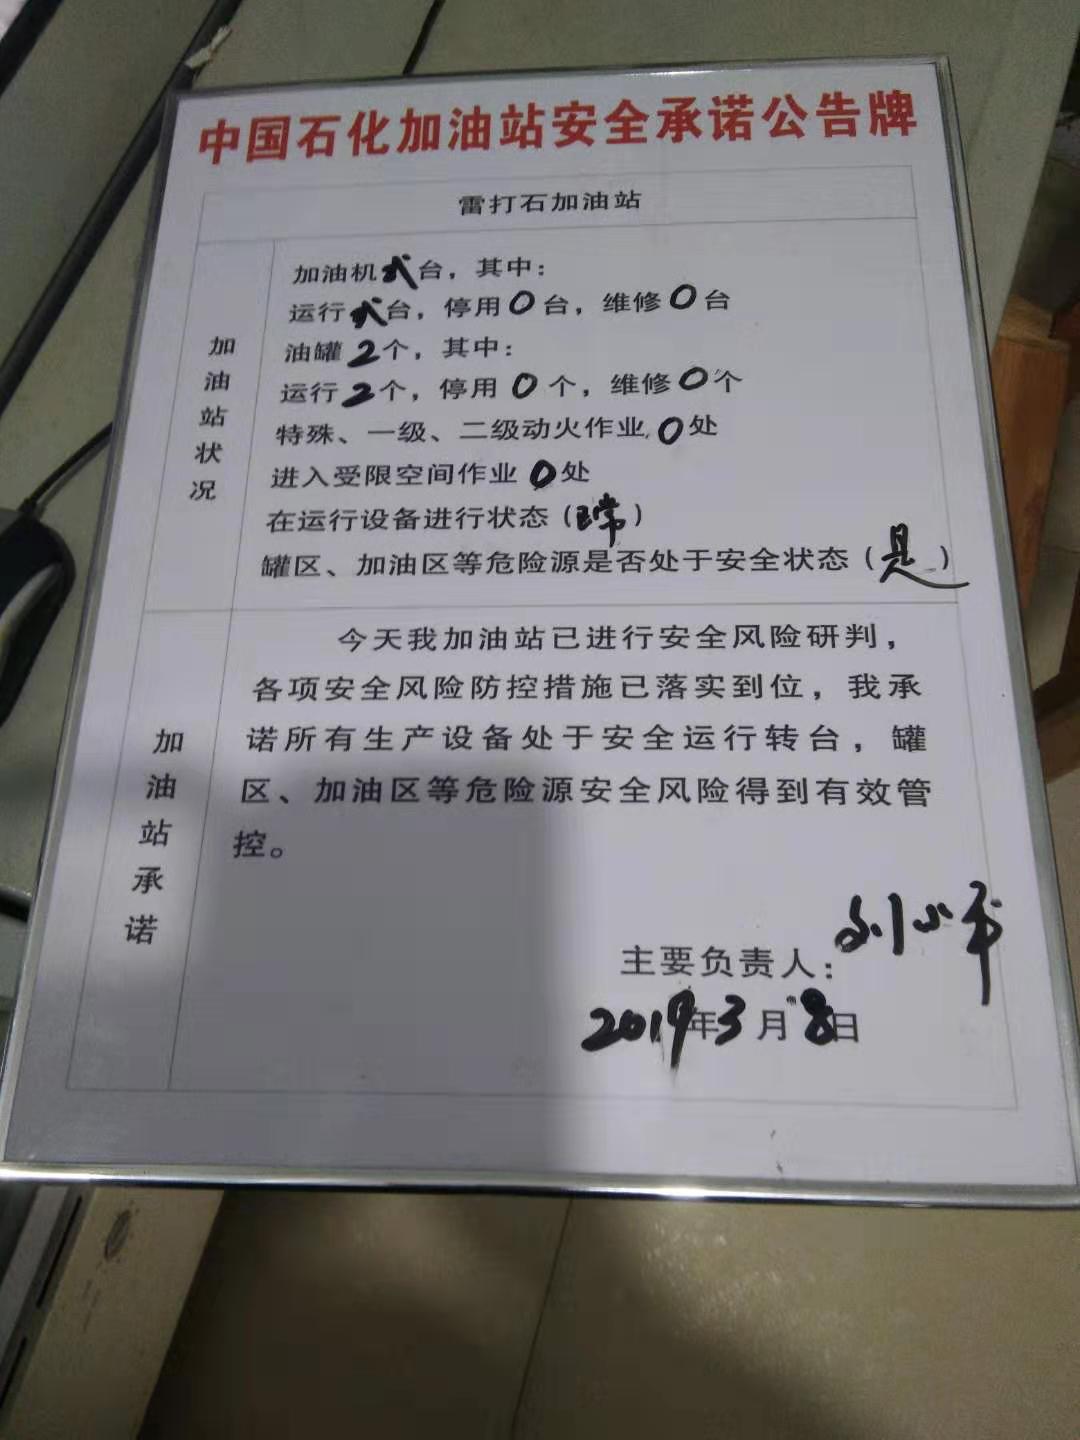 中国石化加油站安全承诺公告牌
雷打石加油站
加油站状况
加油机弍台，其中：
运行弍台，停用0台，维修0台
油罐2个，其中：
运行2个，停用0个，维修0个
特殊、一级、二级动火作业0处
进入受限空间作业0处
在运行设备进行状态（正常）
罐区、加油区等危险源是否处于安全状态（是）
加油站承诺
今天我加油站已进行安全风险研判，
各项安全风险防控措施已落实到位，我承
诺所有生产设备处于安全运行转台，罐
区、加油区等危险源安全风险得到有效管
控。
主要负责人：刘小平
2019年3月8日